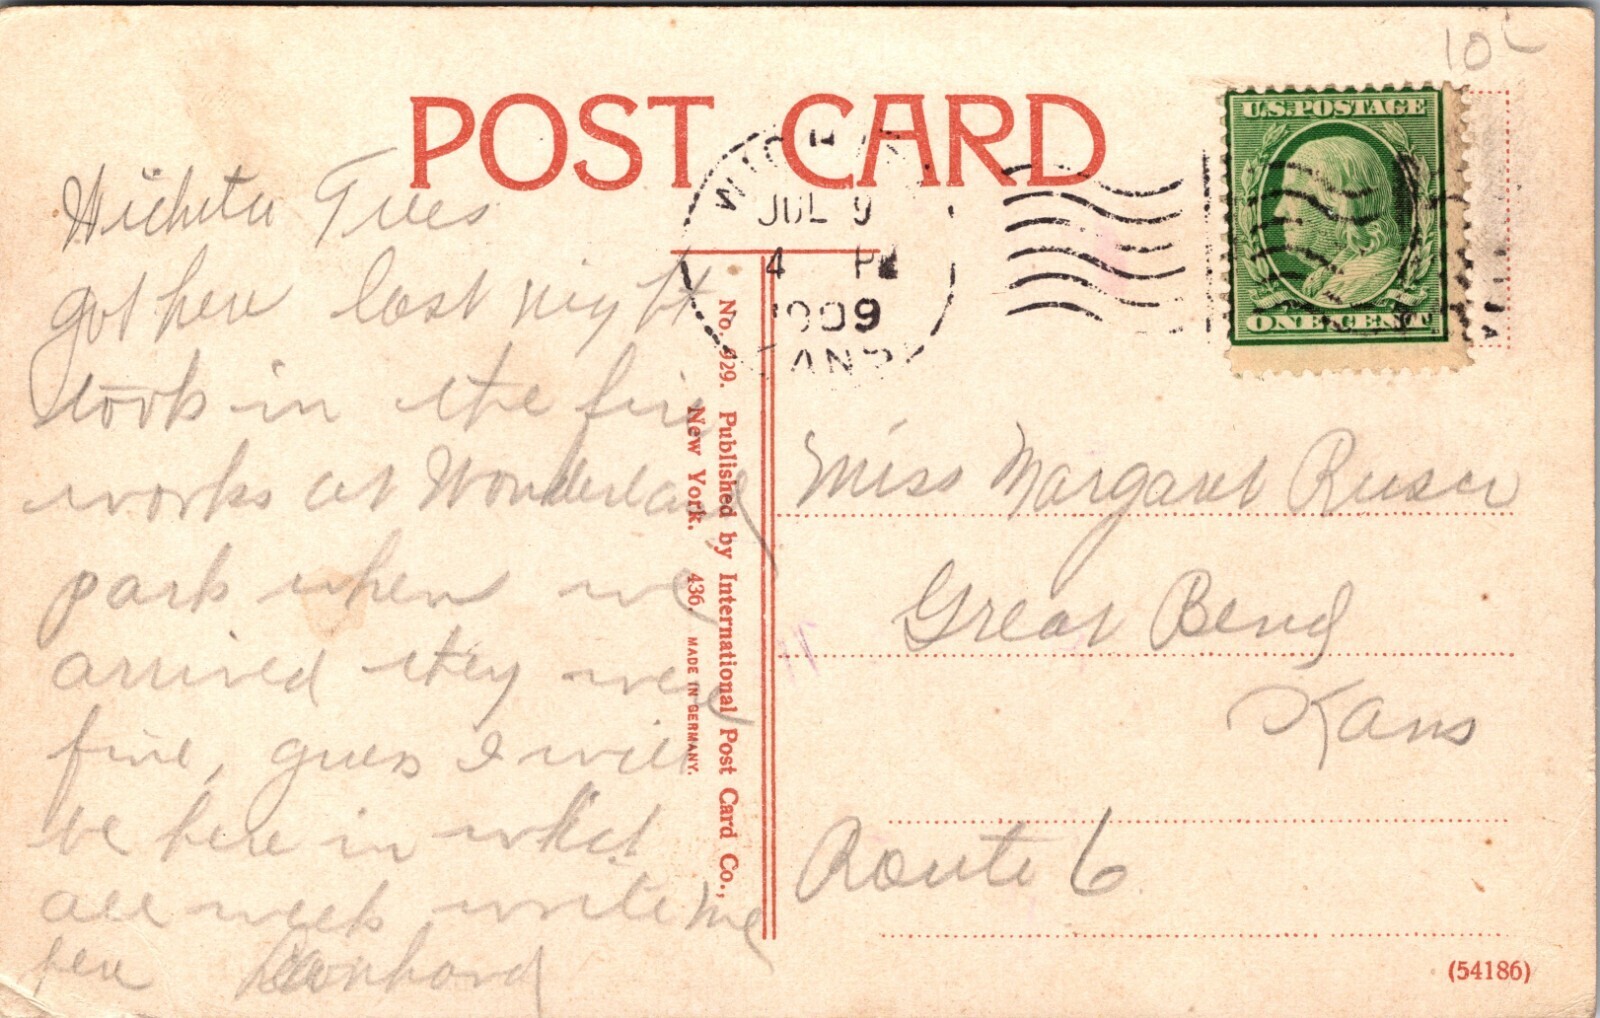 10¢
POST CARD
U.S. POSTAGE
ONE CENT
WICHITA
JUL 9
4 PM
1909
KANS.
Wichita Tues
got here last night
took in the fire
works at Wonderland
park when we
arrived they were
fine, guess I will
be here in wichit
all week write me
here Leonhard
No. 929. Published by International Post Card Co.,
New York. 436. MADE IN GERMANY.
Miss Margaret Rusco
Great Bend
Kans
Route 6
(54186)